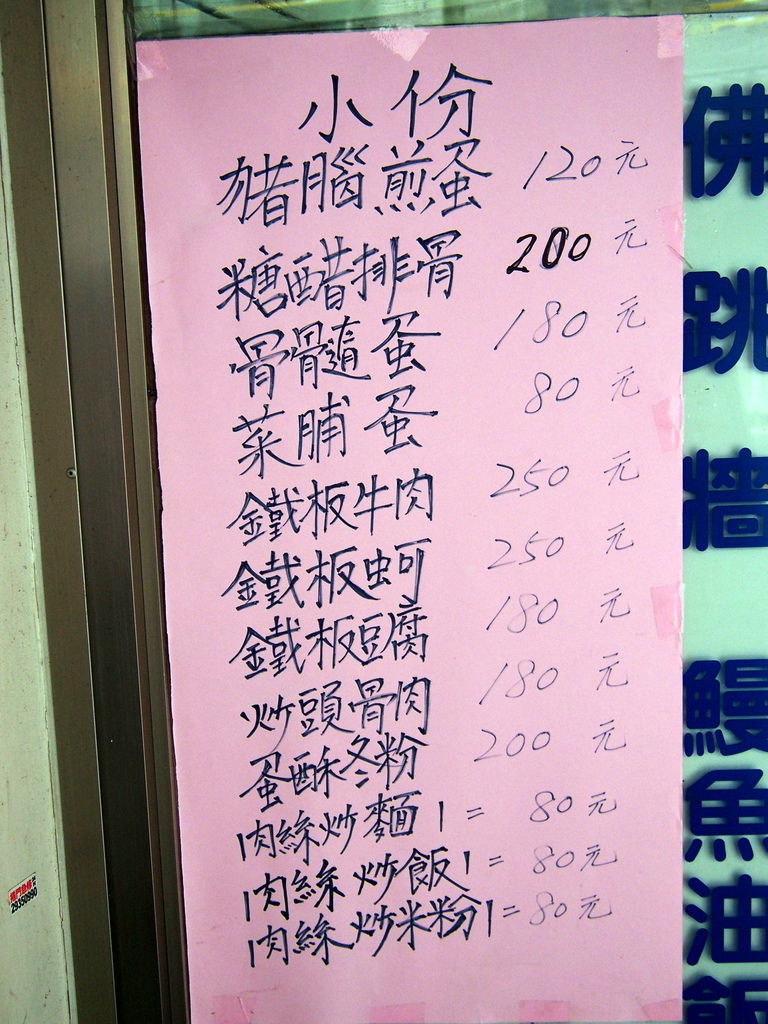 小份
猪腦煎蛋 120元
糖醋排骨 200元
骨髓蛋 180元
菜脯蛋 80元
鐵板牛肉 250元
鐵板蚵 250元
鐵板豆腐 180元
炒頭骨肉 180元
蛋酥冬粉 200元
肉絲炒麵 1= 80元
肉絲炒飯 1= 80元
肉絲炒米粉 1= 80元
佛跳牆
鰻魚油飯
29350990